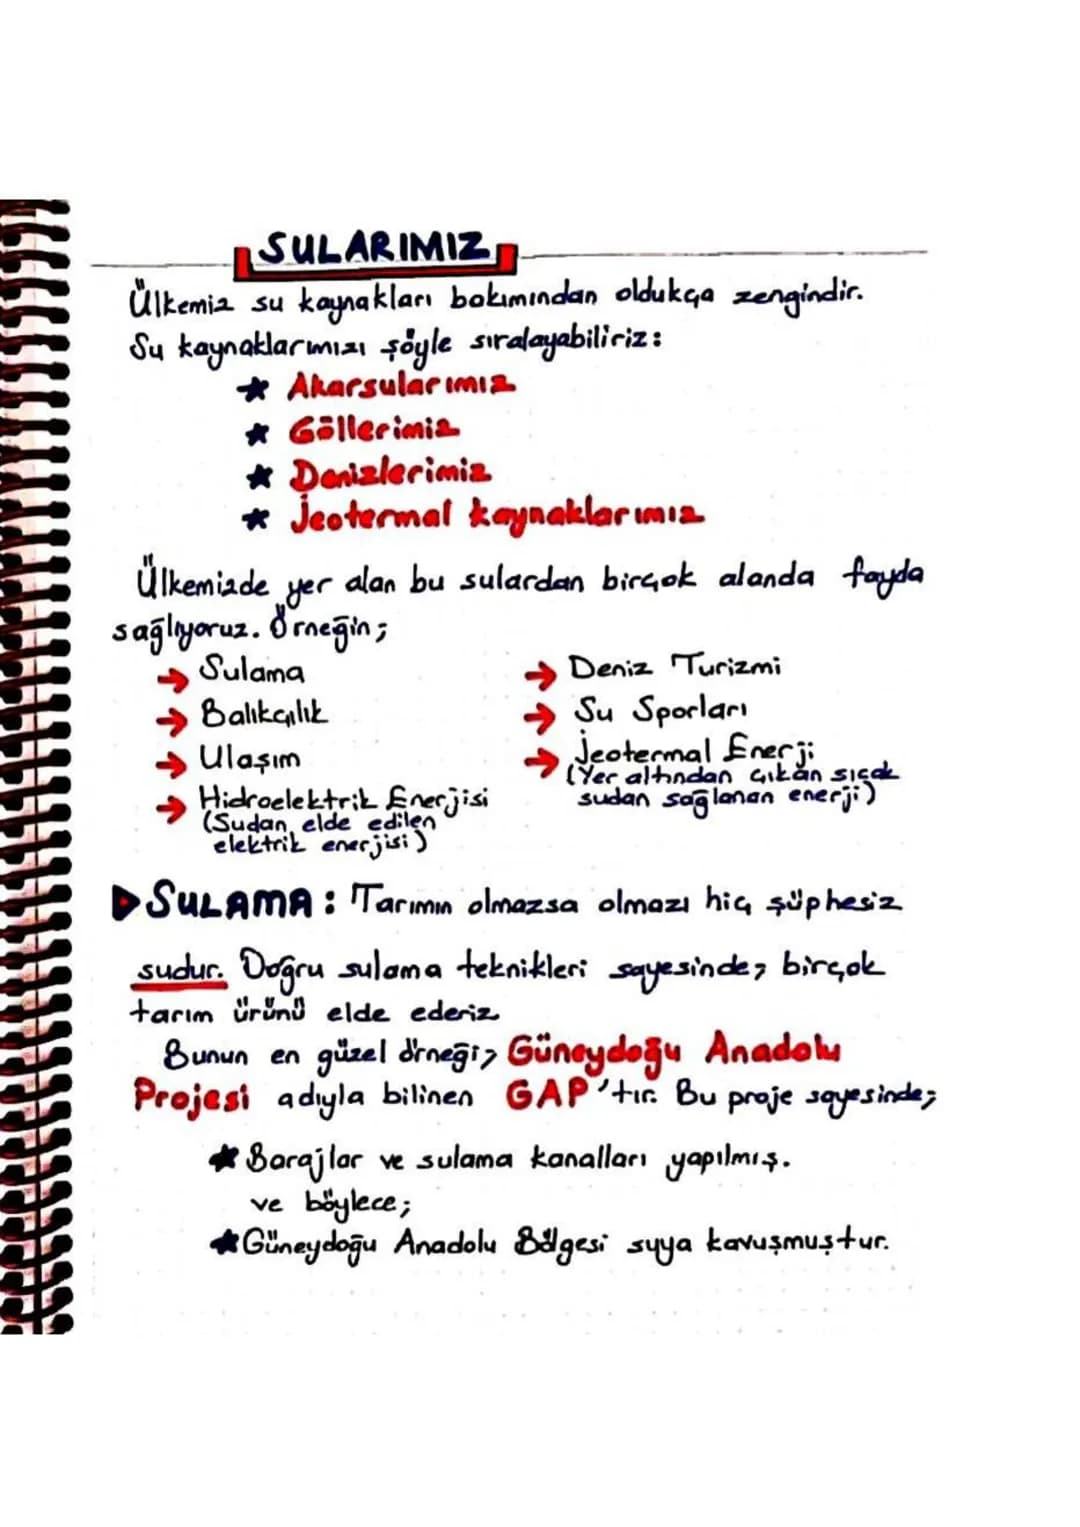 SULARIMIZ
Ülkemiz su kaynakları bakımından oldukça zengindir.
Su kaynaklarımızı şöyle sıralayabiliriz:
★ Akarsularımız
★ Göllerimiz
★ Denizlerimiz
★ Jeotermal kaynaklarımız
Ülkemizde yer alan bu sulardan birçok alanda fayda
sağlıyoruz. Örneğin;
→ Sulama
→ Balıkçılık
→ Ulaşım
→ Hidroelektrik Enerjisi
(Sudan elde edilen
elektrik enerjisi)
→ Deniz Turizmi
→ Su Sporları
→ Jeotermal Enerji
(Yer altından çıkan sıcak
sudan sağlanan enerji)
▶ SULAMA: Tarımın olmazsa olmazı hiç şüphesiz
sudur. Doğru sulama teknikleri sayesinde; birçok
tarım ürünü elde ederiz
Bunun en güzel örneği; Güneydoğu Anadolu
Projesi adıyla bilinen GAP'tır. Bu proje sayesinde;
★ Barajlar ve sulama kanalları yapılmış.
ve böylece;
★ Güneydoğu Anadolu Bölgesi suya kavuşmuştur.